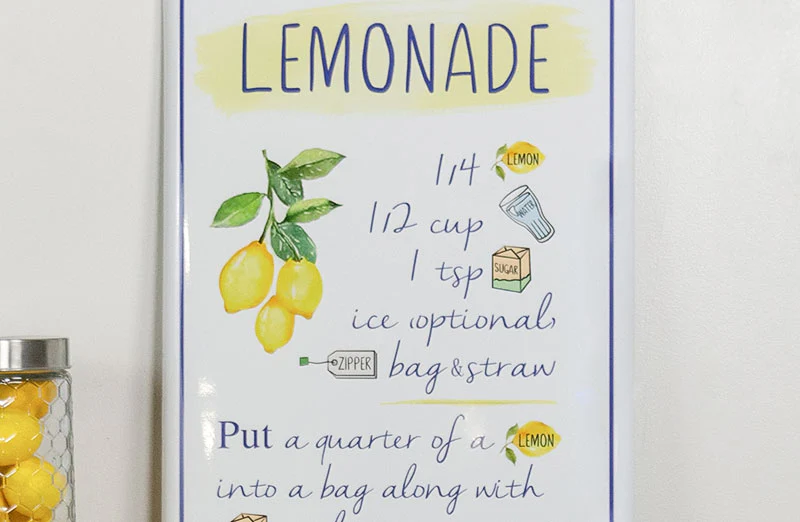 LEMONADE
1/4 LEMON
1/2 cup WATER
1 tsp SUGAR
ice (optional)
ZIPPER bag & straw
Put a quarter of a LEMON
into a bag along with